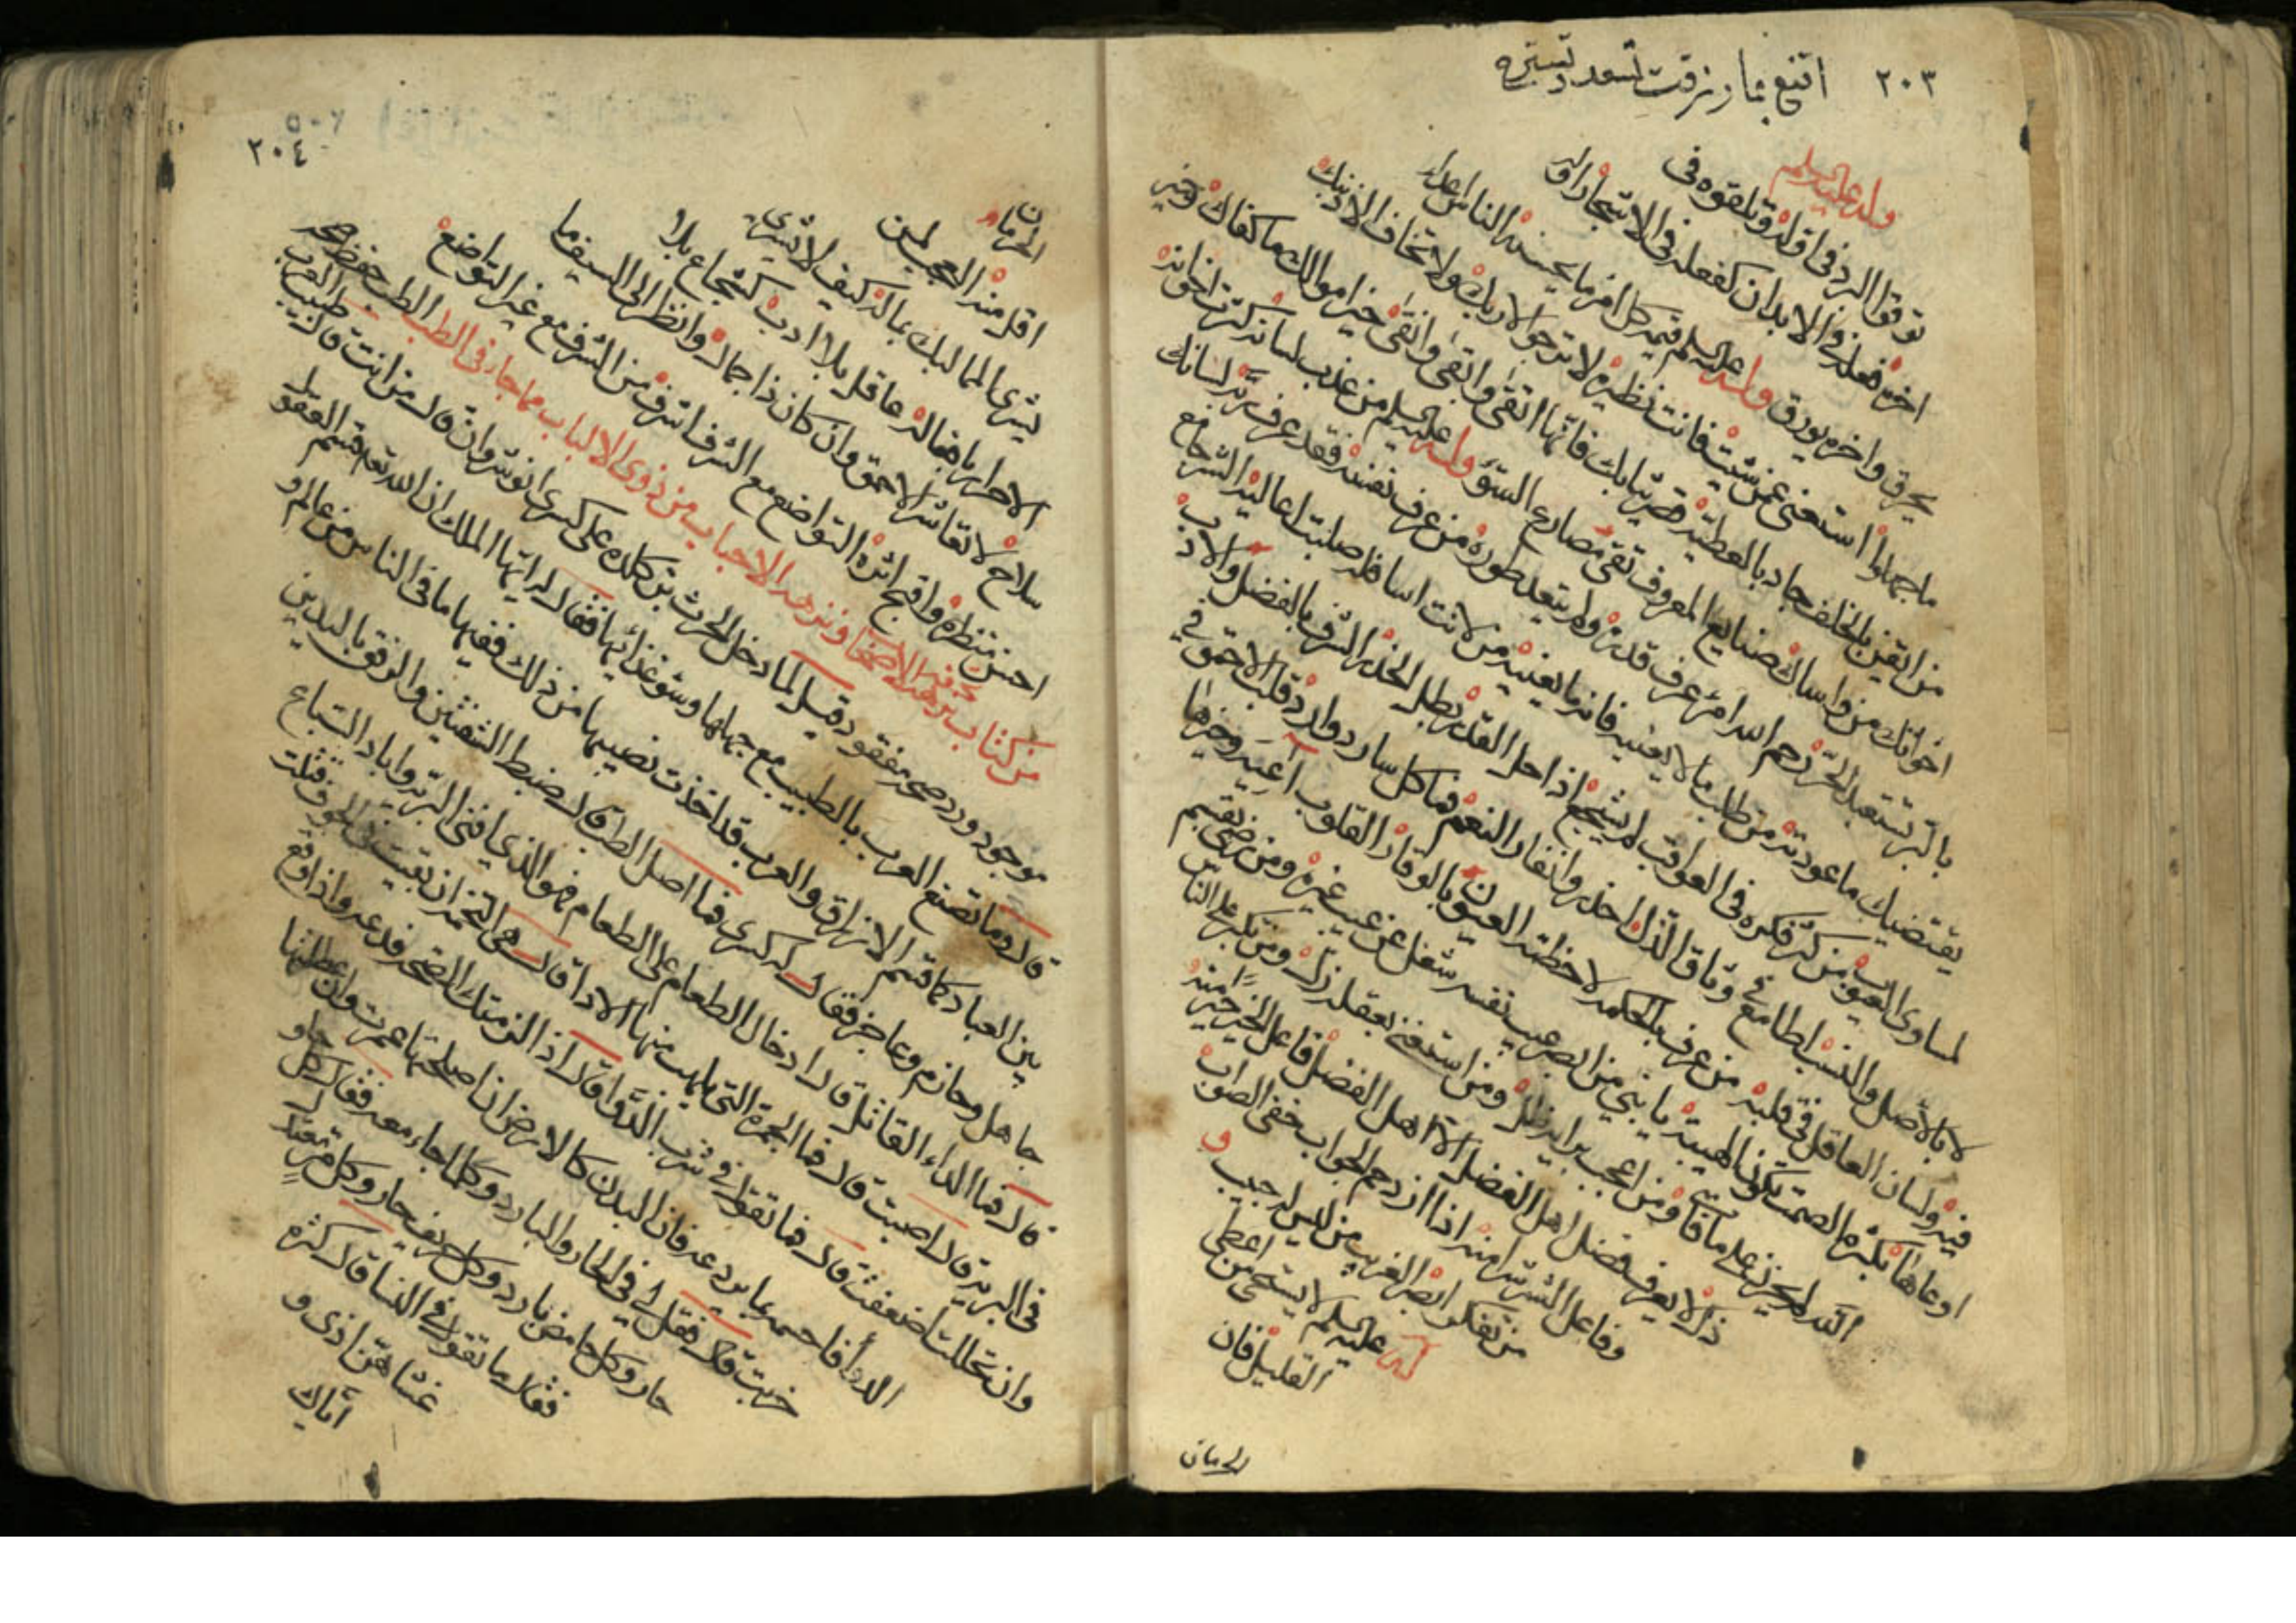 ٢٠٣ اقنع بما رزقت تسعد وتستره
وله عليه السلم
توقوا البرد في اوله وتلقوه في
اخره فعله في الابدان كفعله في الاشجار اوله
يحرق واخره يورق وله عليه السلم قيمة كل امرء ما يحسنه الناس اعداء
ما جهلوا استغنى عمن شئت فانت نظيره لا ترجوا الا ربك ولا تخاف الا ذنبك
من ايقن بالخلف جاد بالعطية قصر ثيابك فانها اتقى وابقى وانقى خير اموالك ما كفاك وخير
اخوانك من واساك صنايع المعروف تقي مصارع السوء وله عليه السلم من عذب لسانه كثرت اخوانه
بالبر تستعبد الحر رحم الله امرء عرف قدره ولم يتعد طوره من عرف نفسه فقد عرف ربه لسانك
يقتضيك ما عودته من طلب ما لا يعنيه فاته ما يعنيه من لانت اسافله صلبت اعاليه الشره جامع
لمساوي العيوب من كثر فكره في العواقب لم يشجع اذا حل القدر بطل الحذر الشرف بالفضل والادب
لا بالاصل والنسب الطامع في وثاق الذل احذروا نفار النعم فما كل شارد قلب الاحمق في
فيه ولسان العاقل في قلبه من عرف بالحكمة لاحظته العيون بالوقار القلوب اوعية وخيرها
اوعاها بكثرة الصمت تكون الهيبة يا بني من ابصر عيب نفسه شغل عن عيب غيره ومن رضي بقسم
الله لم يحزن على ما فاته ومن اعجب برايه ضل ومن استغنى بعقله زل ومن تكبر على الناس
ذل لا يعرف فضل اهل الفضل الا اهل الفضل فاعل الخير خير منه
وفاعل الشر شر منه اذا ازدحم الجواب خفي الصواب
من تفكر ابصر الغريب من ليس له حبيب و
له عليه السلم لا يستحى من اعطى
القليل فان
الحرمان
٢٠٤
الحرمان
اقل منه العجب لمن
يشتري المماليك بماله كيف لا يشتري
الاحرار بافضاله عاقل بلا ادب كشجاع بلا
سلاح لا تعاشر الاحمق وان كان ذا جمال وانظر الى السيف ما
احسن منظره واقبح اثره التواضع مع الشرف اشرف من الشرف مع غير التواضع
من كتاب ونزهة الاحباب من ذوي الالباب مما جاء في الطب الطب حفظ صحة
موجود ورد صحة مفقود قيل لما دخل الحرث بن كلده على كسرى انوشروان قال من انت قال طبيب العرب
قال وما تصنع العرب بالطبيب مع جهلها وسوء غذائها فقال له ايها الملك ان الله تعه قسم العقول
بين العباد كما قسم الارزاق والعرب قد اخذت نصيبها من ذلك ففيها ما في الناس من عالم و
جاهل وحازم وعاجز فقال له كسرى فما اصل الطب قال ضبط الشفتين والرفق باليدين
قال فما الداء القاتل قال ادخال الطعام على الطعام فهو الذي افنى البرية واباد السباع
في البرية قال اصبت قال فما الجمرة التي يلهب منها الادواء قال هي التخمة ان بقيت في الجوف قتلت
وان تحللت اضعفت قال فما تقول في شرب الدواء قال اذا لزمتك الصحة فدعه واذا وقع
الداء فاحسمه بما يردعه فان البدن كالارض ان اصلحتها عمرت وان عطلتها
خربت قال فقل لي في الحار والبارد وكلما جاء معه فقال كل حلو
حار وكل حامض بارد وكل حريف حار وكل مر معتدل
فقال ما تقول في النساء قال كثرة
غشيانهن اذى و
اياك